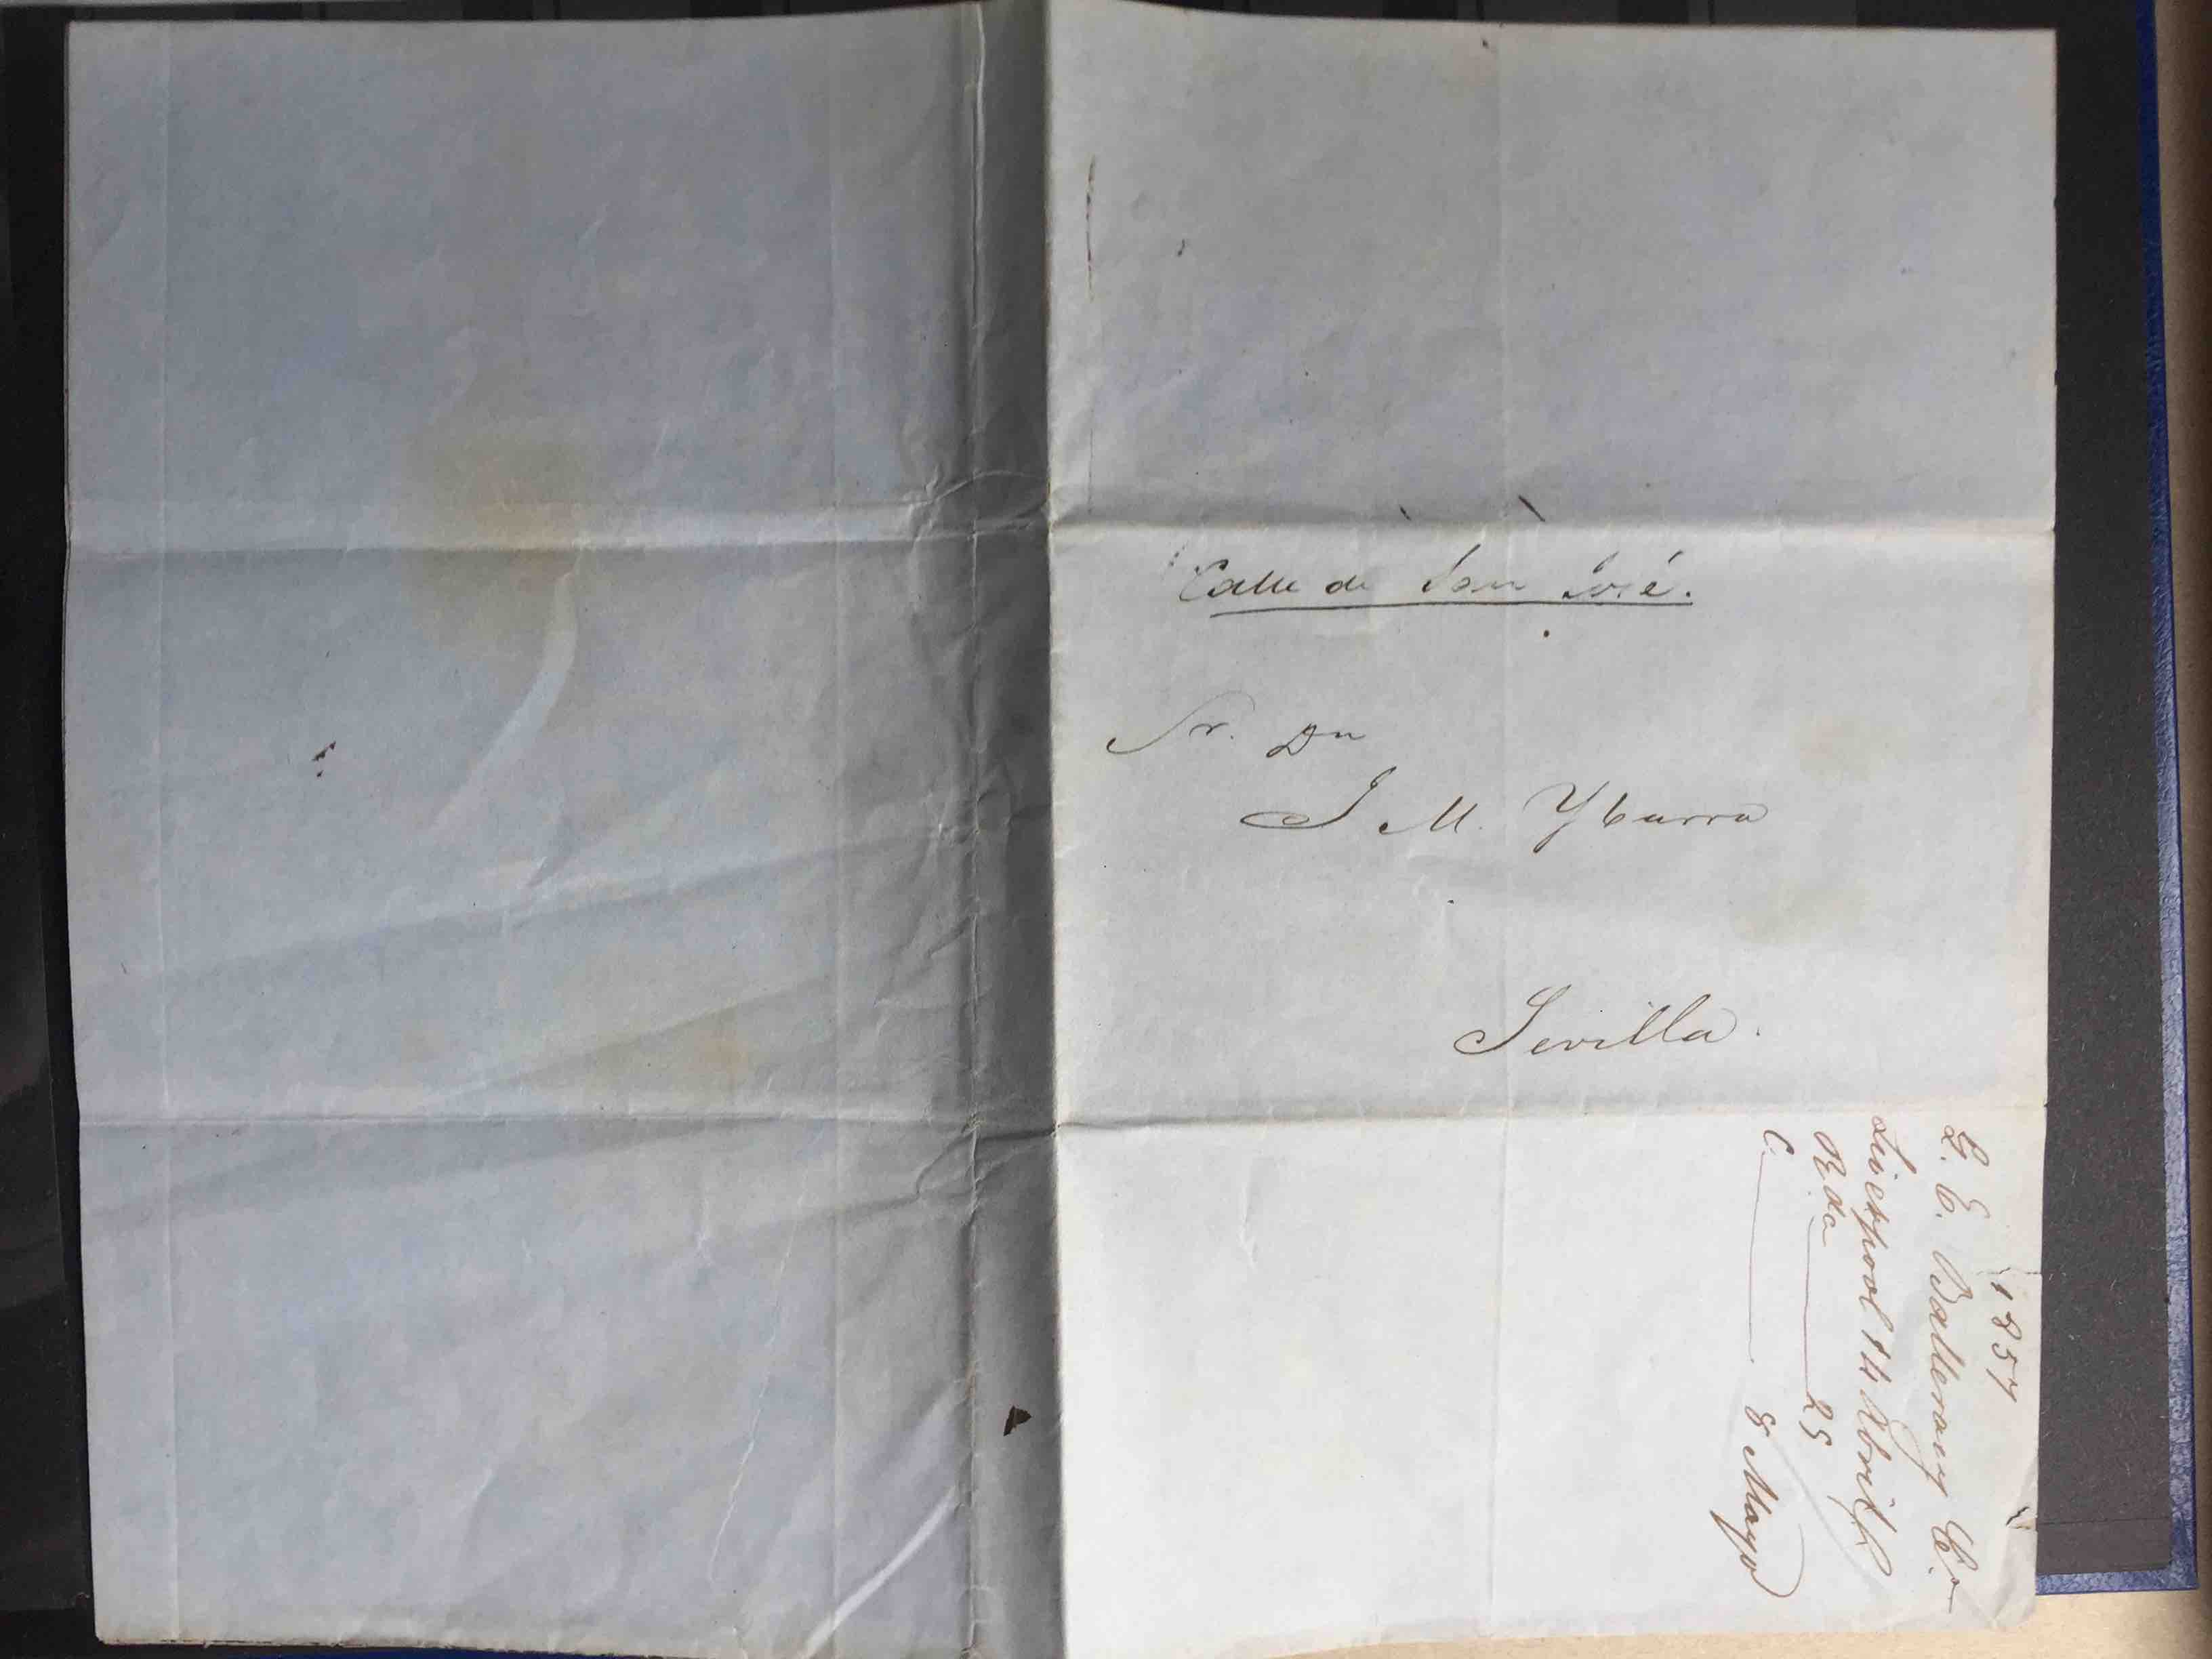 Calle de San José.
Sr. Dn
J M. Ybarra
Sevilla.
1857
Liverpool 14 Abril
Rda 25
C. 8 Mayo